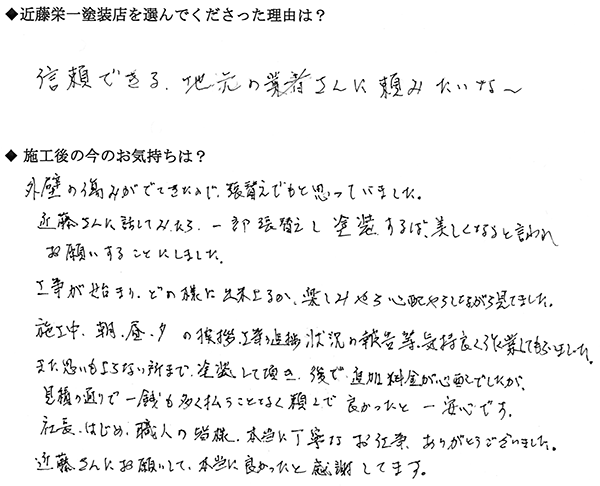 ◆近藤栄一塗装店を選んでくださった理由は？
信頼できる、地元の業者さんに頼みたいな～
◆ 施工後の今のお気持ちは？
外壁の傷みがでてきたので、張替えでもと思っていました。
近藤さんに話してみたら、一部張替えし塗装すれば、美しくなると言われ
お願いすることにしました。
工事が始まり、どの様に出来上るか、楽しみやら心配やらしながら見てました。
施工中、朝、昼、夕の挨拶、工事の進捗状況の報告等、気持良く作業してもらいました。
また思いもよらない所まで、塗装して頂き、後で、追加料金が心配でしたが、
見積り通りで一銭も多く払うことなく頼んで良かったと一安心です。
社長、はじめ、職人の皆様、本当に丁寧なお仕事、ありがとうございました。
近藤さんにお願いして、本当に良かったと感謝してます。